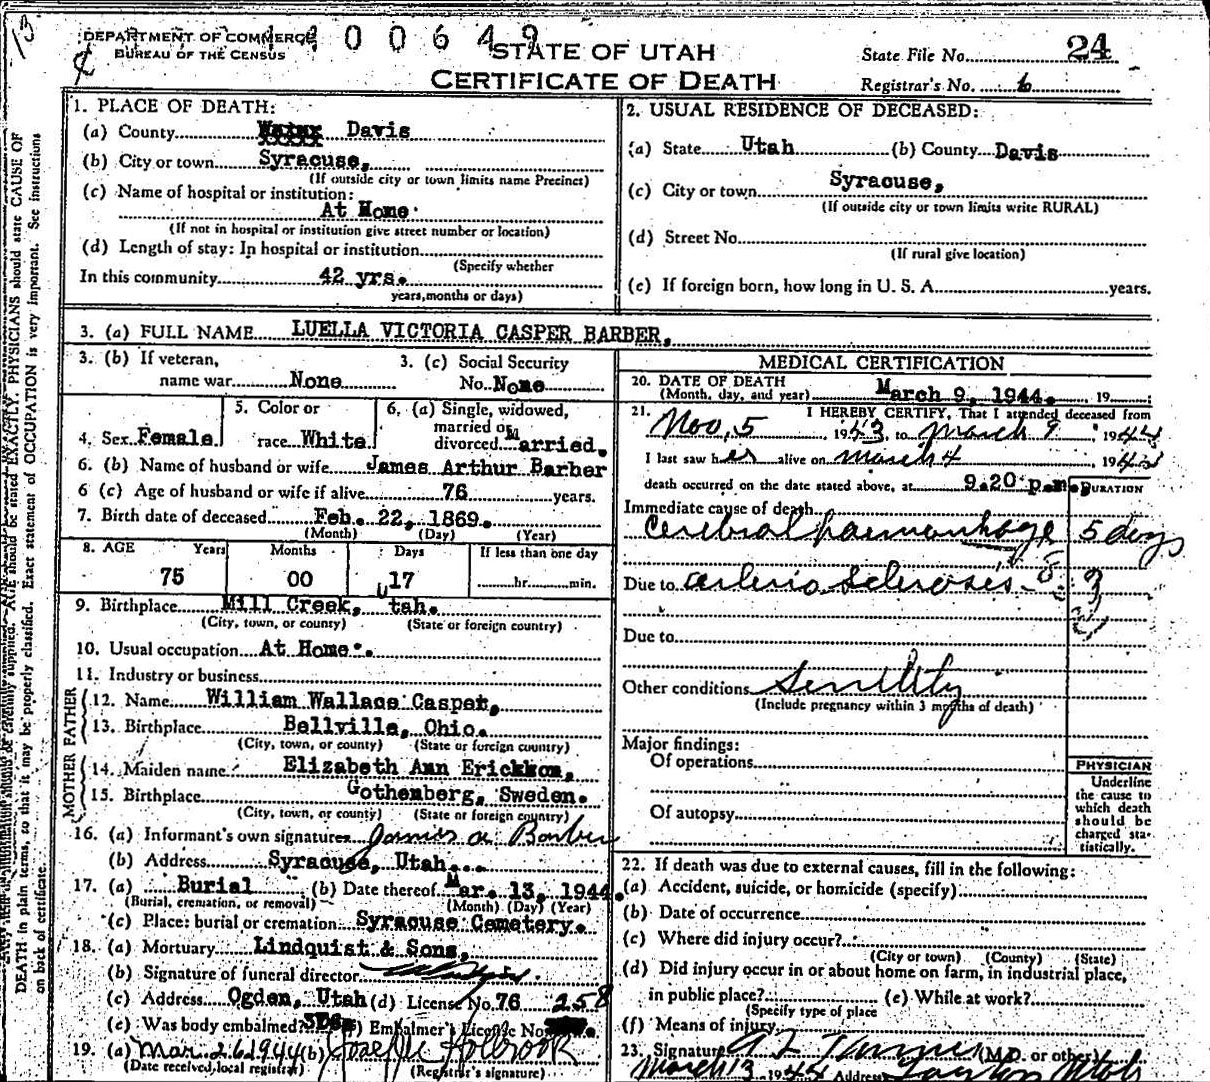 DEPARTMENT OF COMMERCE
BUREAU OF THE CENSUS
00649
STATE OF UTAH
CERTIFICATE OF DEATH
State File No. 24
Registrar's No. 6
1. PLACE OF DEATH:
(a) County Davis
(b) City or town Syracuse,
(If outside city or town limits name Precinct)
(c) Name of hospital or institution:
At Home
(If not in hospital or institution give street number or location)
(d) Length of stay: In hospital or institution
(Specify whether
In this community 42 yrs.
years, months or days)
2. USUAL RESIDENCE OF DECEASED:
(a) State Utah (b) County Davis
(c) City or town Syracuse,
(If outside city or town limits write RURAL)
(d) Street No.
(If rural give location)
(e) If foreign born, how long in U. S. A. years.
3. (a) FULL NAME LUELLA VICTORIA CASPER BARBER,
3. (b) If veteran,
name war None
3. (c) Social Security
No. None
4. Sex Female
5. Color or
race White
6. (a) Single, widowed,
married or
divorced Married.
6. (b) Name of husband or wife James Arthur Barber
6 (c) Age of husband or wife if alive 76 years.
7. Birth date of deceased Feb. 22, 1869.
(Month) (Day) (Year)
8. AGE Years Months Days If less than one day
75 00 17 hr. min.
9. Birthplace Mill Creek, Utah.
(City, town, or county) (State or foreign country)
10. Usual occupation At Home.
11. Industry or business
FATHER
12. Name William Wallace Casper,
13. Birthplace Bellville, Ohio.
(City, town, or county) (State or foreign country)
MOTHER
14. Maiden name Elizabeth Ann Erickson,
15. Birthplace Gothenberg, Sweden.
(City, town, or county) (State or foreign country)
16. (a) Informant's own signature James A Barber
(b) Address Syracuse, Utah.
17. (a) Burial (b) Date thereof Mar. 13, 1944.
(Burial, cremation, or removal) (Month) (Day) (Year)
(c) Place: burial or cremation Syracuse Cemetery.
18. (a) Mortuary Lindquist & Sons,
(b) Signature of funeral director
(c) Address Ogden, Utah (d) License No. 76 258
(e) Was body embalmed? (f) Embalmer's License No.
19. (a) Mar. 26 1944 (b) Holbrook
(Date received local registrar) (Registrar's signature)
MEDICAL CERTIFICATION
20. DATE OF DEATH
(Month, day, and year) March 9, 1944. 19
21. I HEREBY CERTIFY, That I attended deceased from
Nov. 5 1943, to March 9 1944
I last saw her alive on March 4 194
death occurred on the date stated above, at 9.20 p.m.
DURATION
Immediate cause of death
Cerebral haemorrhage 5 days
Due to arterio scleroses
Due to
Other conditions Senility
(Include pregnancy within 3 months of death)
Major findings:
Of operations
Of autopsy
PHYSICIAN
Underline
the cause to
which death
should be
charged sta-
tistically.
22. If death was due to external causes, fill in the following:
(a) Accident, suicide, or homicide (specify)
(b) Date of occurrence
(c) Where did injury occur?
(City or town) (County) (State)
(d) Did injury occur in or about home on farm, in industrial place,
in public place? (e) While at work?
(Specify type of place
(f) Means of injury
23. Signature (M.D. or other)
March 13, 1944 Address Layton Utah
DEATH in plain terms, so that it may be properly classified. Exact statement of OCCUPATION is very important. See instructions
on back of certificate.
AGE should be stated EXACTLY. PHYSICIANS should state CAUSE OF